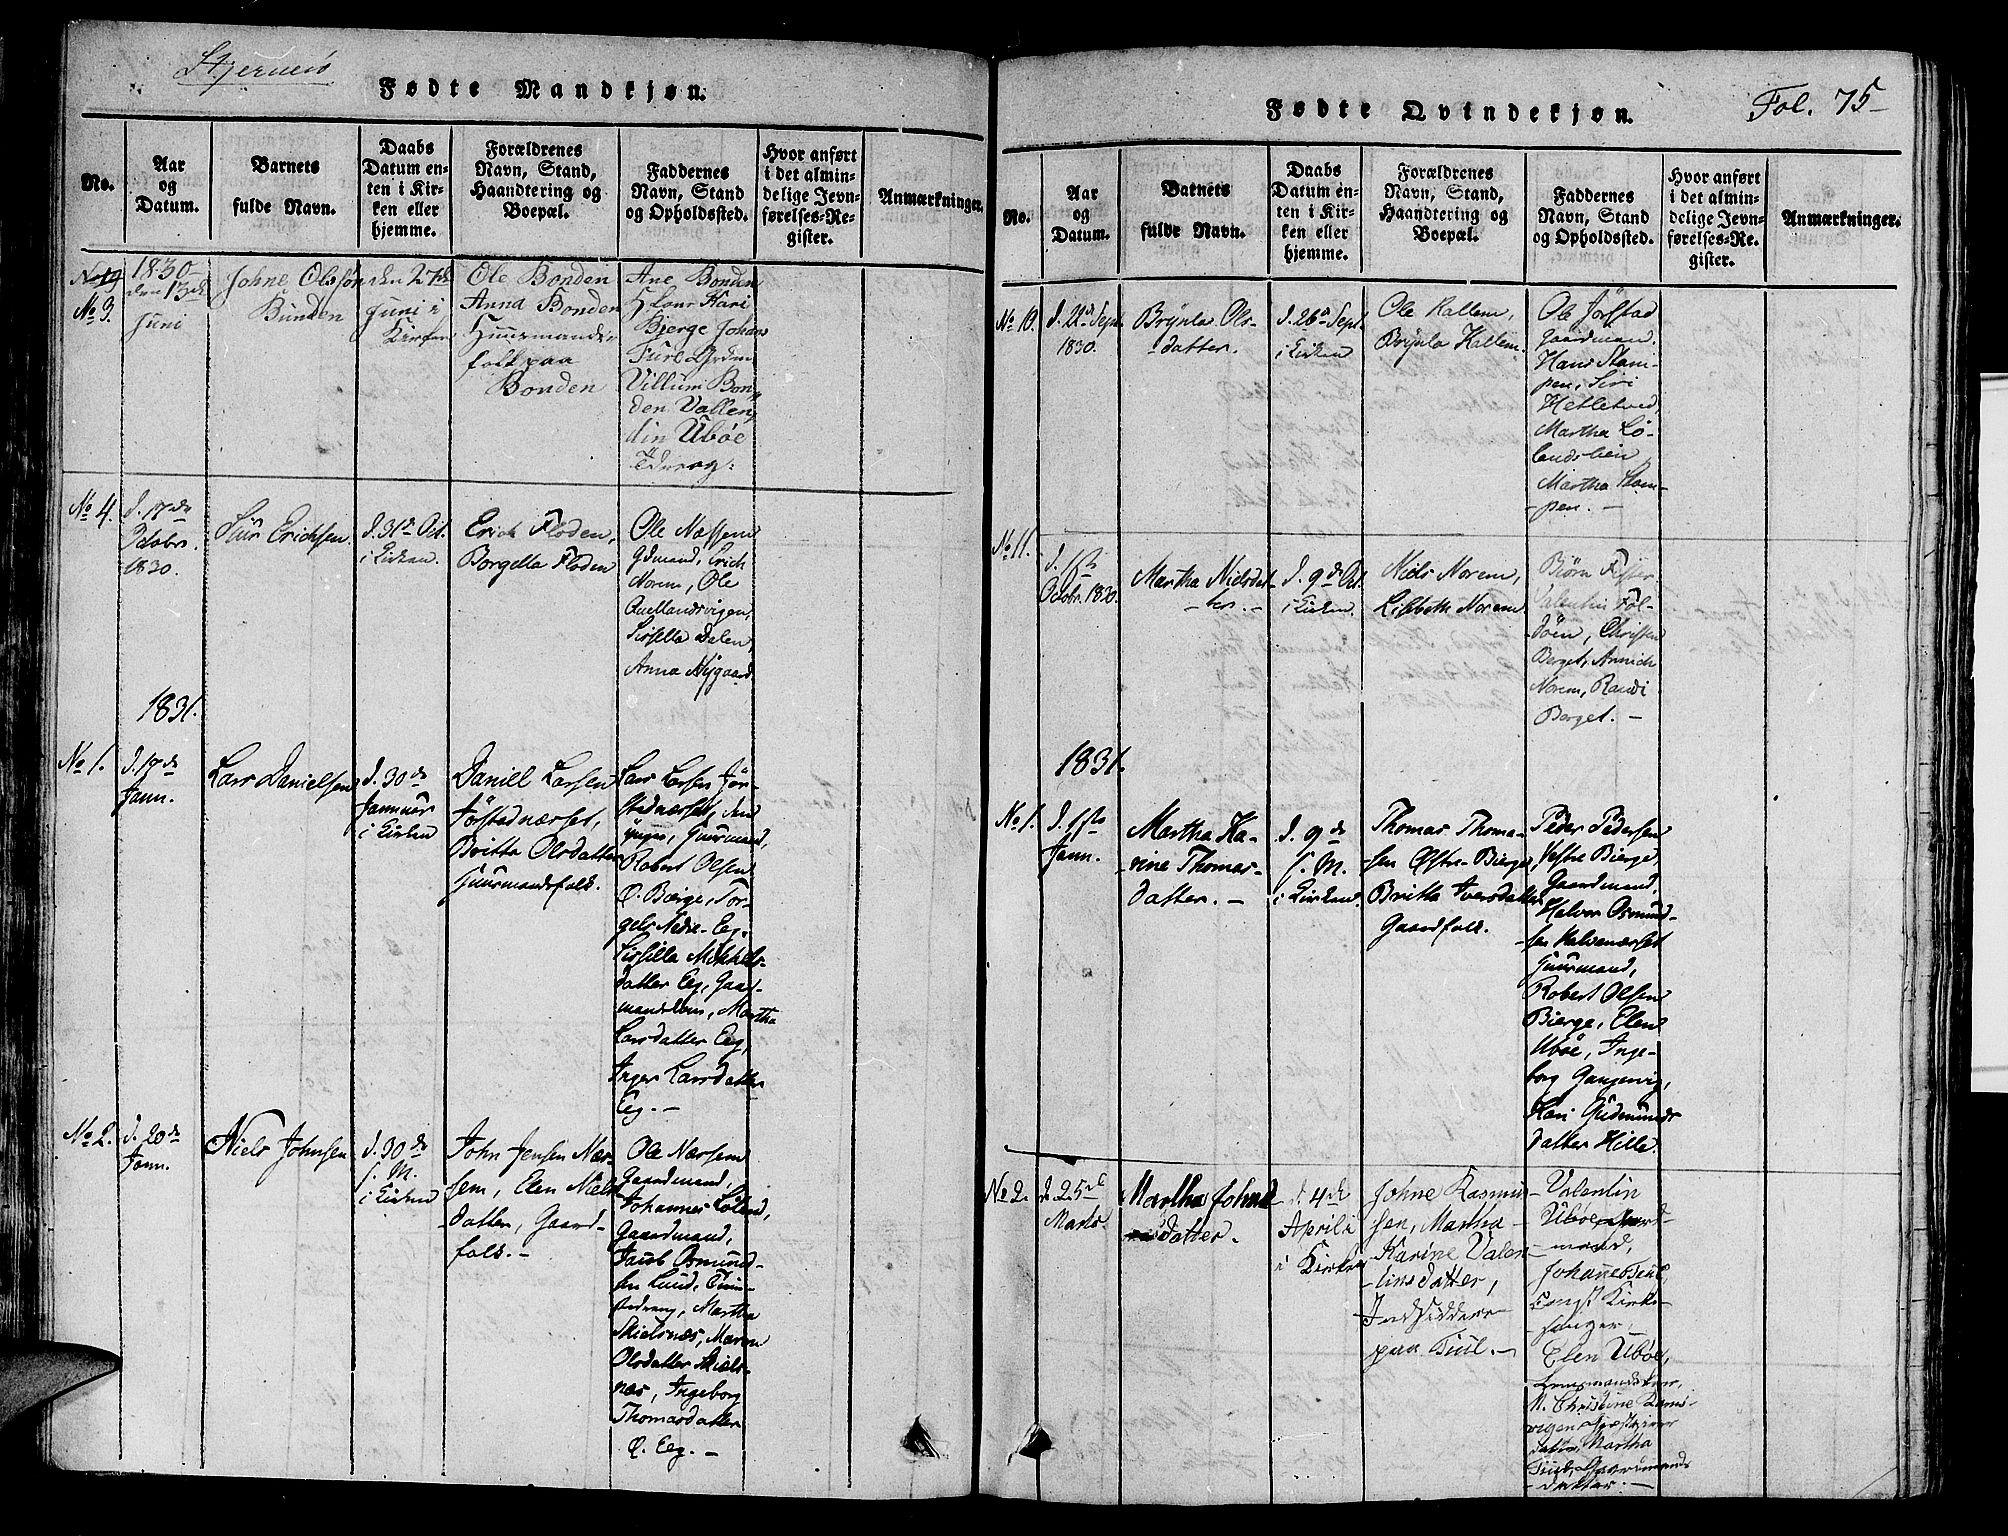 Stjernerö
Fødte Mandkjøn.
No.
Aar
og
Datum.
Barnets
fulde Navn.
Daabs
Datum en-
ten i Kir-
ken eller
hjemme.
Forældrenes
Navn, Stand,
Haandtering og
Boepæl.
Faddernes
Navn, Stand
og Opholdssted.
Hvor anført
i det almin-
delige Jevn-
førelses-Re-
gister.
Anmærkninger.
No 3.
1830
den 13de
Juni
Johne Olssøn
Bunden
den 27de
Juni i
Kirken
Ole Bonden
Anna Bonden
Huusmands-
folk paa
Bonden
Ane Bonden
Kari
Bjerge Johans
Ture
Villum Bon-
den Vallen-
din Ubøe
No 4.
d. 17de
Octobr.
1830.
Siur Erichsen
d. 31te Oct.
i Kirken.
Erich Floden,
Borgella Floden
Ole Nassem
Gdmand, Erich
Norem, Ole
Quellandsvigen,
Sissella Dalen,
Anna Nygaard
1831.
No 1.
d. 17de
Jann.
Lars Danielsen
d. 30de
Januar
i Kirken
Daniel Larsen
Jørstadnæset,
Britta Olsdatter
Huusmandsfolk.
Lars Larsen Jør-
stadnæset, den
yngre, Huusmand,
Robert Olsen
Ø. Bærge, Tor-
gels Nedre-Eeg,
Sissilla Mikkels-
datter Eeg, Gaard-
mandskone, Martha
Larsdatter Eeg,
Inger Larsdatter
Eeg. -
No 2.
d. 20de
Jann.
Niels Johnsen
d. 30de
s. M.
i Kirken
John Jensen Nær-
sem, Elen Niels-
datter, Gaard-
folk. -
Ole Nærsem
Gaardmand,
Johannes Løland,
Gaardmand,
Jacob Osmund-
sen Lund,
Martha
Skielsnæs, Maren
Olsdatter Skiels-
næs, Ingeborg
Thomasdatter
Ø. Eeg. -
Fødte Qvindekjøn.
Fol. 75
No.
Aar
og
Datum.
Barnets
fulde Navn.
Daabs
Datum en-
ten i Kir-
ken eller
hjemme.
Forældrenes
Navn, Stand,
Haandtering og
Boepæl.
Faddernes
Navn, Stand
og Opholdssted.
Hvor anført
i det almin-
delige Jevn-
førelses-Re-
gister.
Anmærkninger.
No 10.
d. 22d Sept.
1830.
Brynla Ols-
datter.
d. 26d Sept.
i Kirken
Ole Hallem,
Brynla Hallem.
Ole Jørstad
Gaardmand.
Hans Stam-
pen, Siri
Hetletved,
Martha Lø-
landslien,
Martha Stam-
pen. -
No 11.
d. 1ste
Octobr. 1830.
Martha Nielsdat-
ter. -
d. 9de Oct.
i Kirken.
Niels Norem,
Lisbeth Norem.
Biørn Fister
Valentin Fol-
døen, Christen
Berget, Annich
Norem, Randi
Berget. -
1831.
No 1.
d. 1ste
Jann.
Martha Ka-
rine Thomas-
datter. -
d. 9de
s. M.
i Kirken.
Thomas Thoma-
sen Østre-Bierge,
Britta Iversdatter
Gaardfolk.
Peder Pedersen
Vestre Bierge,
Gaardmand,
Halvor Osmund-
sen Halvenæset
Huusmand,
Robert Olsen
Bierge, Elen
Ubøe, Inge-
borg Gangenvig,
Kari Gudmunds-
datter Hille.
No 2.
d. 25de
Marts.
Martha Johne-
datter.
d. 4de
Aprili
i Kirken
Johne Rasmus-
sen, Martha
Karine Valen-
tinsdatter,
Indsiddere
paa Tiul. -
Valentin
Ubøe,
mand,
Johannes Tiul
Kirke-
sanger,
Elen Ubøe,
Lensmandskone,
M. Christine
vigen
datter, Martha
Tiul, Gaardmands
datter. -